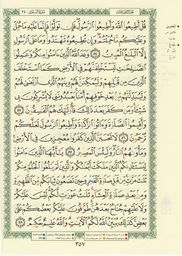 قُلْ أَطِيعُوا۟ ٱللَّهَ وَأَطِيعُوا۟ ٱلرَّسُولَ فَإِن تَوَلَّوْا۟ فَإِنَّمَا عَلَيْهِ مَا حُمِّلَ
وَعَلَيْكُم مَّا حُمِّلْتُمْ وَإِن تُطِيعُوهُ تَهْتَدُوا۟ وَمَا عَلَى ٱلرَّسُولِ
إِلَّا ٱلْبَلَٰغُ ٱلْمُبِينُ ٥٤ وَعَدَ ٱللَّهُ ٱلَّذِينَ ءَامَنُوا۟ مِنكُمْ وَعَمِلُوا۟
ٱلصَّٰلِحَٰتِ لَيَسْتَخْلِفَنَّهُمْ فِى ٱلْأَرْضِ كَمَا ٱسْتَخْلَفَ ٱلَّذِينَ
مِن قَبْلِهِمْ وَلَيُمَكِّنَنَّ لَهُمْ دِينَهُمُ ٱلَّذِى ٱرْتَضَىٰ لَهُمْ
وَلَيُبَدِّلَنَّهُم مِّنۢ بَعْدِ خَوْفِهِمْ أَمْنًا يَعْبُدُونَنِى لَا يُشْرِكُونَ بِى
شَيْـًٔا وَمَن كَفَرَ بَعْدَ ذَٰلِكَ فَأُو۟لَٰٓئِكَ هُمُ ٱلْفَٰسِقُونَ ٥٥ وَأَقِيمُوا۟
ٱلصَّلَوٰةَ وَءَاتُوا۟ ٱلزَّكَوٰةَ وَأَطِيعُوا۟ ٱلرَّسُولَ لَعَلَّكُمْ
تُرْحَمُونَ ٥٦ لَا تَحْسَبَنَّ ٱلَّذِينَ كَفَرُوا۟ مُعْجِزِينَ فِى ٱلْأَرْضِ
وَمَأْوَىٰهُمُ ٱلنَّارُ وَلَبِئْسَ ٱلْمَصِيرُ ٥٧ يَٰٓأَيُّهَا ٱلَّذِينَ ءَامَنُوا۟
لِيَسْتَـْٔذِنكُمُ ٱلَّذِينَ مَلَكَتْ أَيْمَٰنُكُمْ وَٱلَّذِينَ لَمْ يَبْلُغُوا۟ ٱلْحُلُمَ مِنكُمْ
ثَلَٰثَ مَرَّٰتٍ مِّن قَبْلِ صَلَوٰةِ ٱلْفَجْرِ وَحِينَ تَضَعُونَ ثِيَابَكُم مِّنَ ٱلظَّهِيرَةِ
وَمِنۢ بَعْدِ صَلَوٰةِ ٱلْعِشَآءِ ثَلَٰثُ عَوْرَٰتٍ لَّكُمْ لَيْسَ عَلَيْكُمْ
وَلَا عَلَيْهِمْ جُنَاحٌۢ بَعْدَهُنَّ طَوَّٰفُونَ عَلَيْكُم بَعْضُكُمْ عَلَىٰ
بَعْضٍ كَذَٰلِكَ يُبَيِّنُ ٱللَّهُ لَكُمُ ٱلْـَٔايَٰتِ وَٱللَّهُ عَلِيمٌ حَكِيمٌ ٥٨
٣٥٧